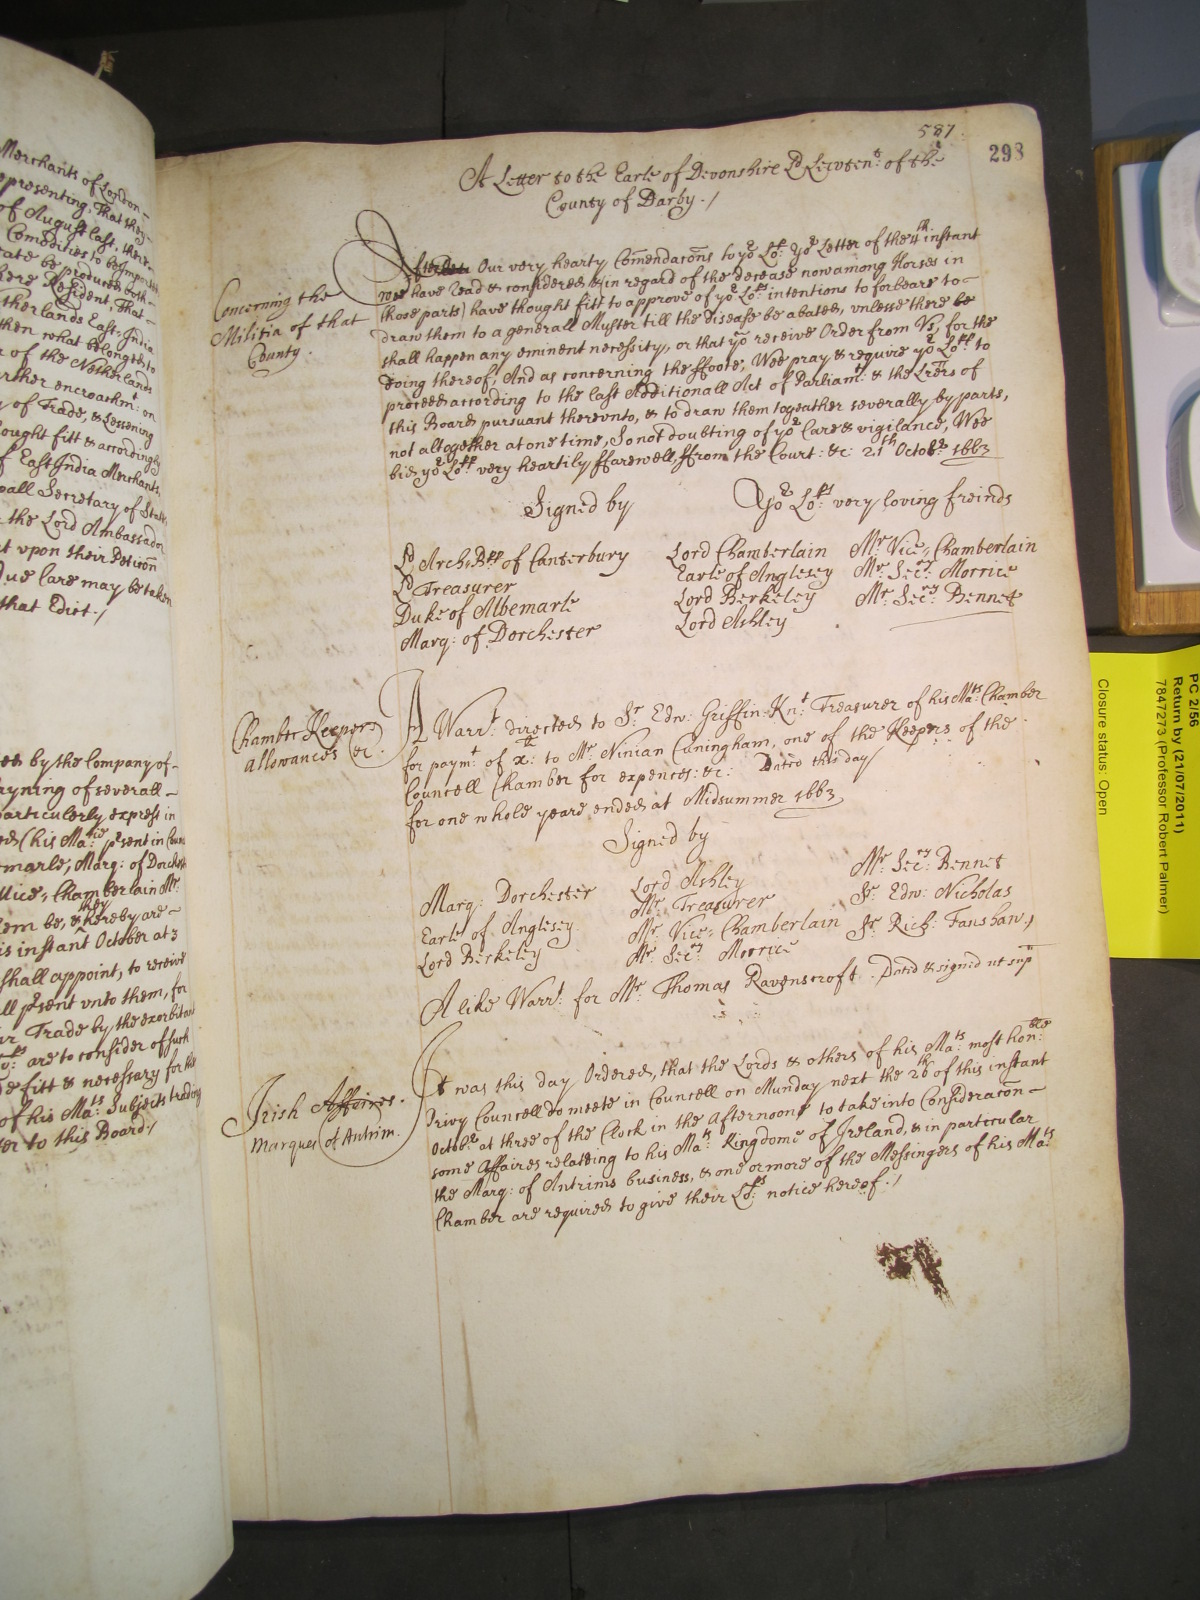 Merchants of London –
epresenting, That they
of August last, there
Comodities to be imported
cate be produced both –
here Resident, That –
therlands East-India
then what belongeth to
of the Netherlands
urther encroachmt: on
y of Trade, & Lessening
hought fitt & accordingly
f East India Merchants,
ipall Secretary of State
the Lord Ambassador
t upon their Peticon
Due Care may be taken
that Edict ./
ed by the Company of –
ayning of severall –
articulerly exprest in
ed (his Matie prsent in Coun
marle, Marq: of Dorchest
Vice-Chamberlain Mr.
em be, & they hereby are –
is instant October at 3
shall appoint, to receive
ll prsent vnto them, for
ir Trade by the exorbitant
Lops: are to consider of such
be fitt & necessary for his
of his Mats: Subjects trading
er to this Board /
587
298
A Letter to the Earle of Devonshire Ld Leivtent: of the
County of Darby ./
Concerning the
Militia of that
County.
After Our very hearty Comendacons to yor Lop: Yor Letter of the 4th instant
wee have read & considered & (in regard of the decease now among Horses in
those parts) have thought fitt to approve of yor Lops intentions to forbeare to –
draw them to a generall Muster till the disease be abated, vnlesse there be
shall happen any eminent necessity, or that yo receive Order from Vs, for the
doing thereof, And as concerning the ffoote, Wee pray & require yor Lopp to
proceed according to the last Additionall Act of Parliamt: & the Lres of
this Board pursuant therevnto, & to draw them togeather severally by parts,
not altogether at one time, So not doubting of yor Care & vigilance, Wee
bid yor Lopp very heartily ffarewell, ffrom the Court: &c: 21th Octobr 1663
Signed by Yor Lops very loving freinds
Ld Arch:Bpp of Canterbury Lord Chamberlain Mr. Vice-Chamberlain
Ld Treasurer Earle of Anglesey Mr. Secry: Morrice
Duke of Albemarle Lord Berkeley Mr. Secry: Bennet
Marq: of Dorchester Lord Ashley
Chamber Keepers
allowances &c.
A Warrt: directed to Sr. Edw: Griffin Knt: Treasurer of his Mats: Chamber
for paymt: of xli: to Mr. Ninian Cuningham, one of the Keepers of the
Councell Chamber for expences: &c: Dated this day
for one whole yeare ended at Midsummer 1663
Signed by
Marq: Dorchester Lord Ashley Mr. Secry: Bennet
Earle of Anglesey Mr. Treasurer Sr. Edw: Nicholas
Lord Berkeley Mr. Vice-Chamberlain Sr. Rich: Fanshaw ./
Mr. Secry: Morrice
A like Warrt: for Mr. Thomas Ravenscroft. Dated & signed ut sup
Irish Affaires.
Marques of Antrim.
It was this day Ordered, that the Lords & others of his Mats: most honble:
Privy Councell do meete in Councell on Munday next the 26th of this instant
Octobr at three of the Clock in the Afternoone to take into Consideracon –
some Affaires relateing to his Mats: Kingdome of Ireland, & in particular
the Marq: of Antrims business, & one or more of the Messingers of his Mats
Chamber are required to give their Lops: notice hereof ./
PC 2/56
Return by (21/07/2011)
7847273 (Professor Robert Palmer)
Closure status: Open